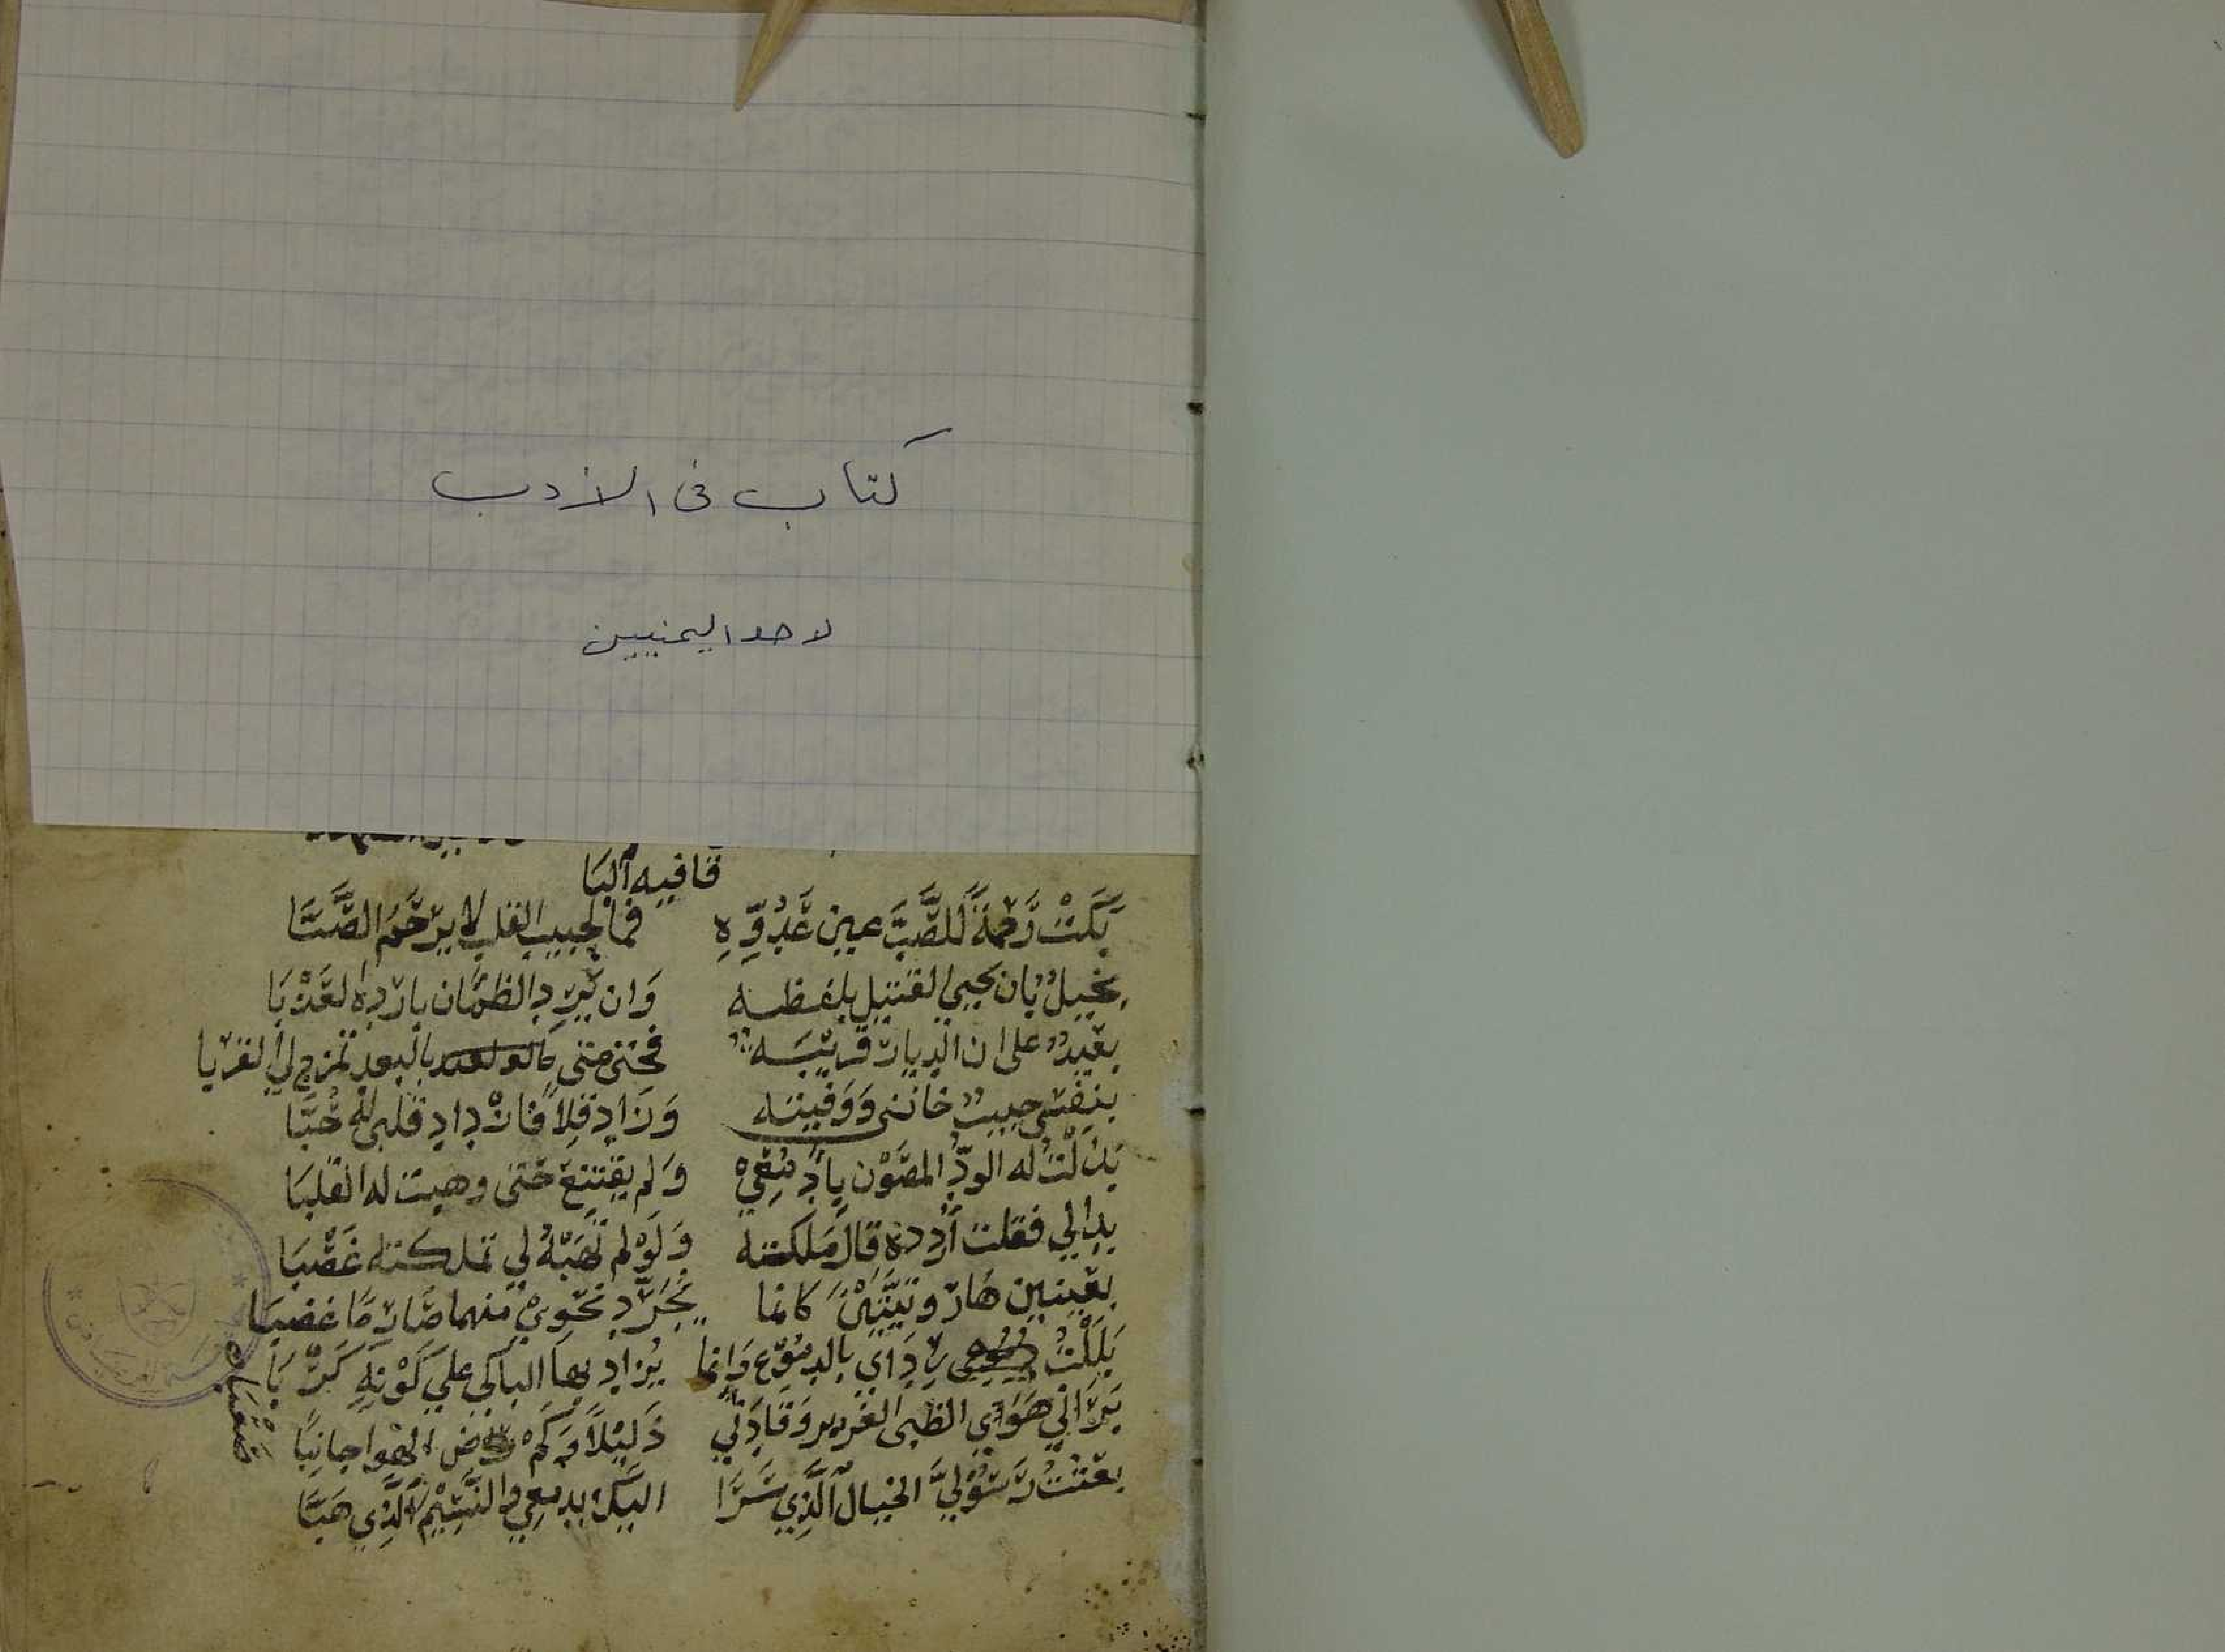 كتاب فى الأدب
لاحد اليمنيين
قافيه البا
بَكَتْ رَحمَةً للصَّبِّ عين عَدُوِّهِ فما لحبيب القلب لا يرْحَمُ الصَّبَّا
بخيلٌ بان يحيي القتيل بلفظه وَان يُبرِد الظمْان بارده العَذْبَا
بعيدٌ على ان الديار قريبَه فحتى متى بالبعد تمزج لي القربا
بنفسى حبيبٌ خاننى وَوَفيته وَزَاد قلاً فازْداد قلبى له حُبَّا
بذلتُ له الودّ المصَوْن بادمُعِيْ وَلم يقتنع حَتى وهبت له القلبَا
بدا لي فقلت أرْدده قال مَلكته وَلَوْ لم تَهَبْهُ لي تملكته غَصْبَا
بعينين هَارُوتيَّتَيْن كانما يُجَرِّد نحوِيْ منهما صَارمًا عضبا
بَلَلْتُ رِدَاي بالدمُوْع وَانما يُزاد بها الباكى علي كَوْنِهِ كَرْبَا
بَرَانِي هَوَاي الظبى الغرير وَقَادَنِي ذَليْلاً وَكَمْ رَاض الهوا جانبًا صَعْبَا
بعَثْتُ رَسُوْلِيَّ الخيال الَّذِي سَرَا اليك بدمعي والنَّسِيْم الَّذِي هَبَّا